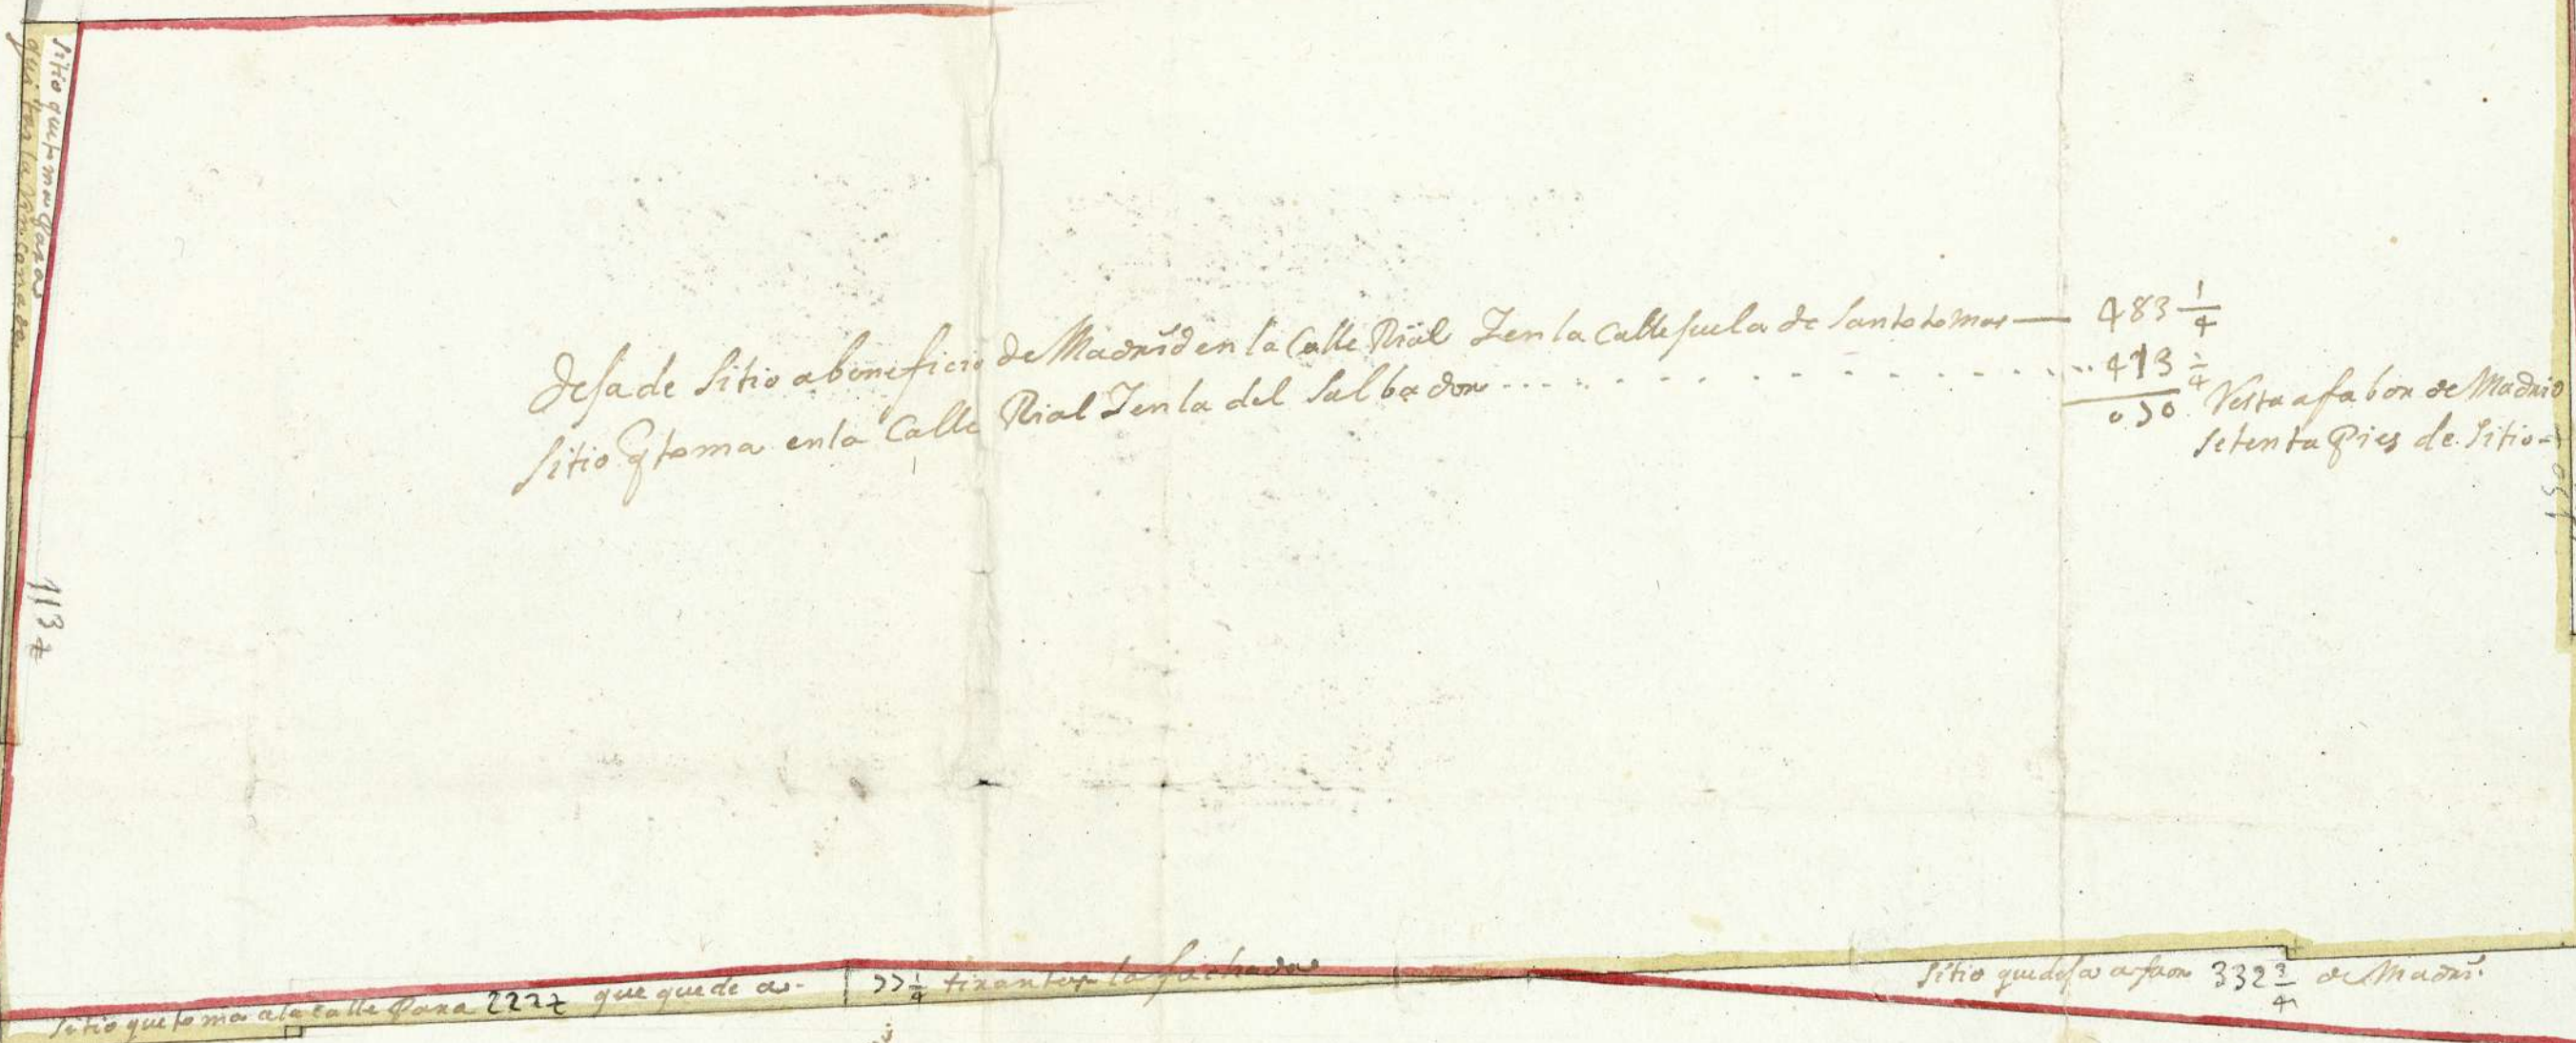 Sitio que toma Para
quitar la Rinconada
113 ½
desa de Sitio a beneficio de Madrid en la Calle Rial Y en la Callesuela de Santo tomas — 483 1/4
Sitio q toma en la Calle Rial Y en la del Salbador ... 413 1/4
070 Resta a fabor de Madrid
Setenta Pies de Sitio =
150
Sitio que toma a la Calle Para 222½ que quede a-
77 1/4 tirantes la fachada
Sitio que desa a faor 332 3/4 de Madrid